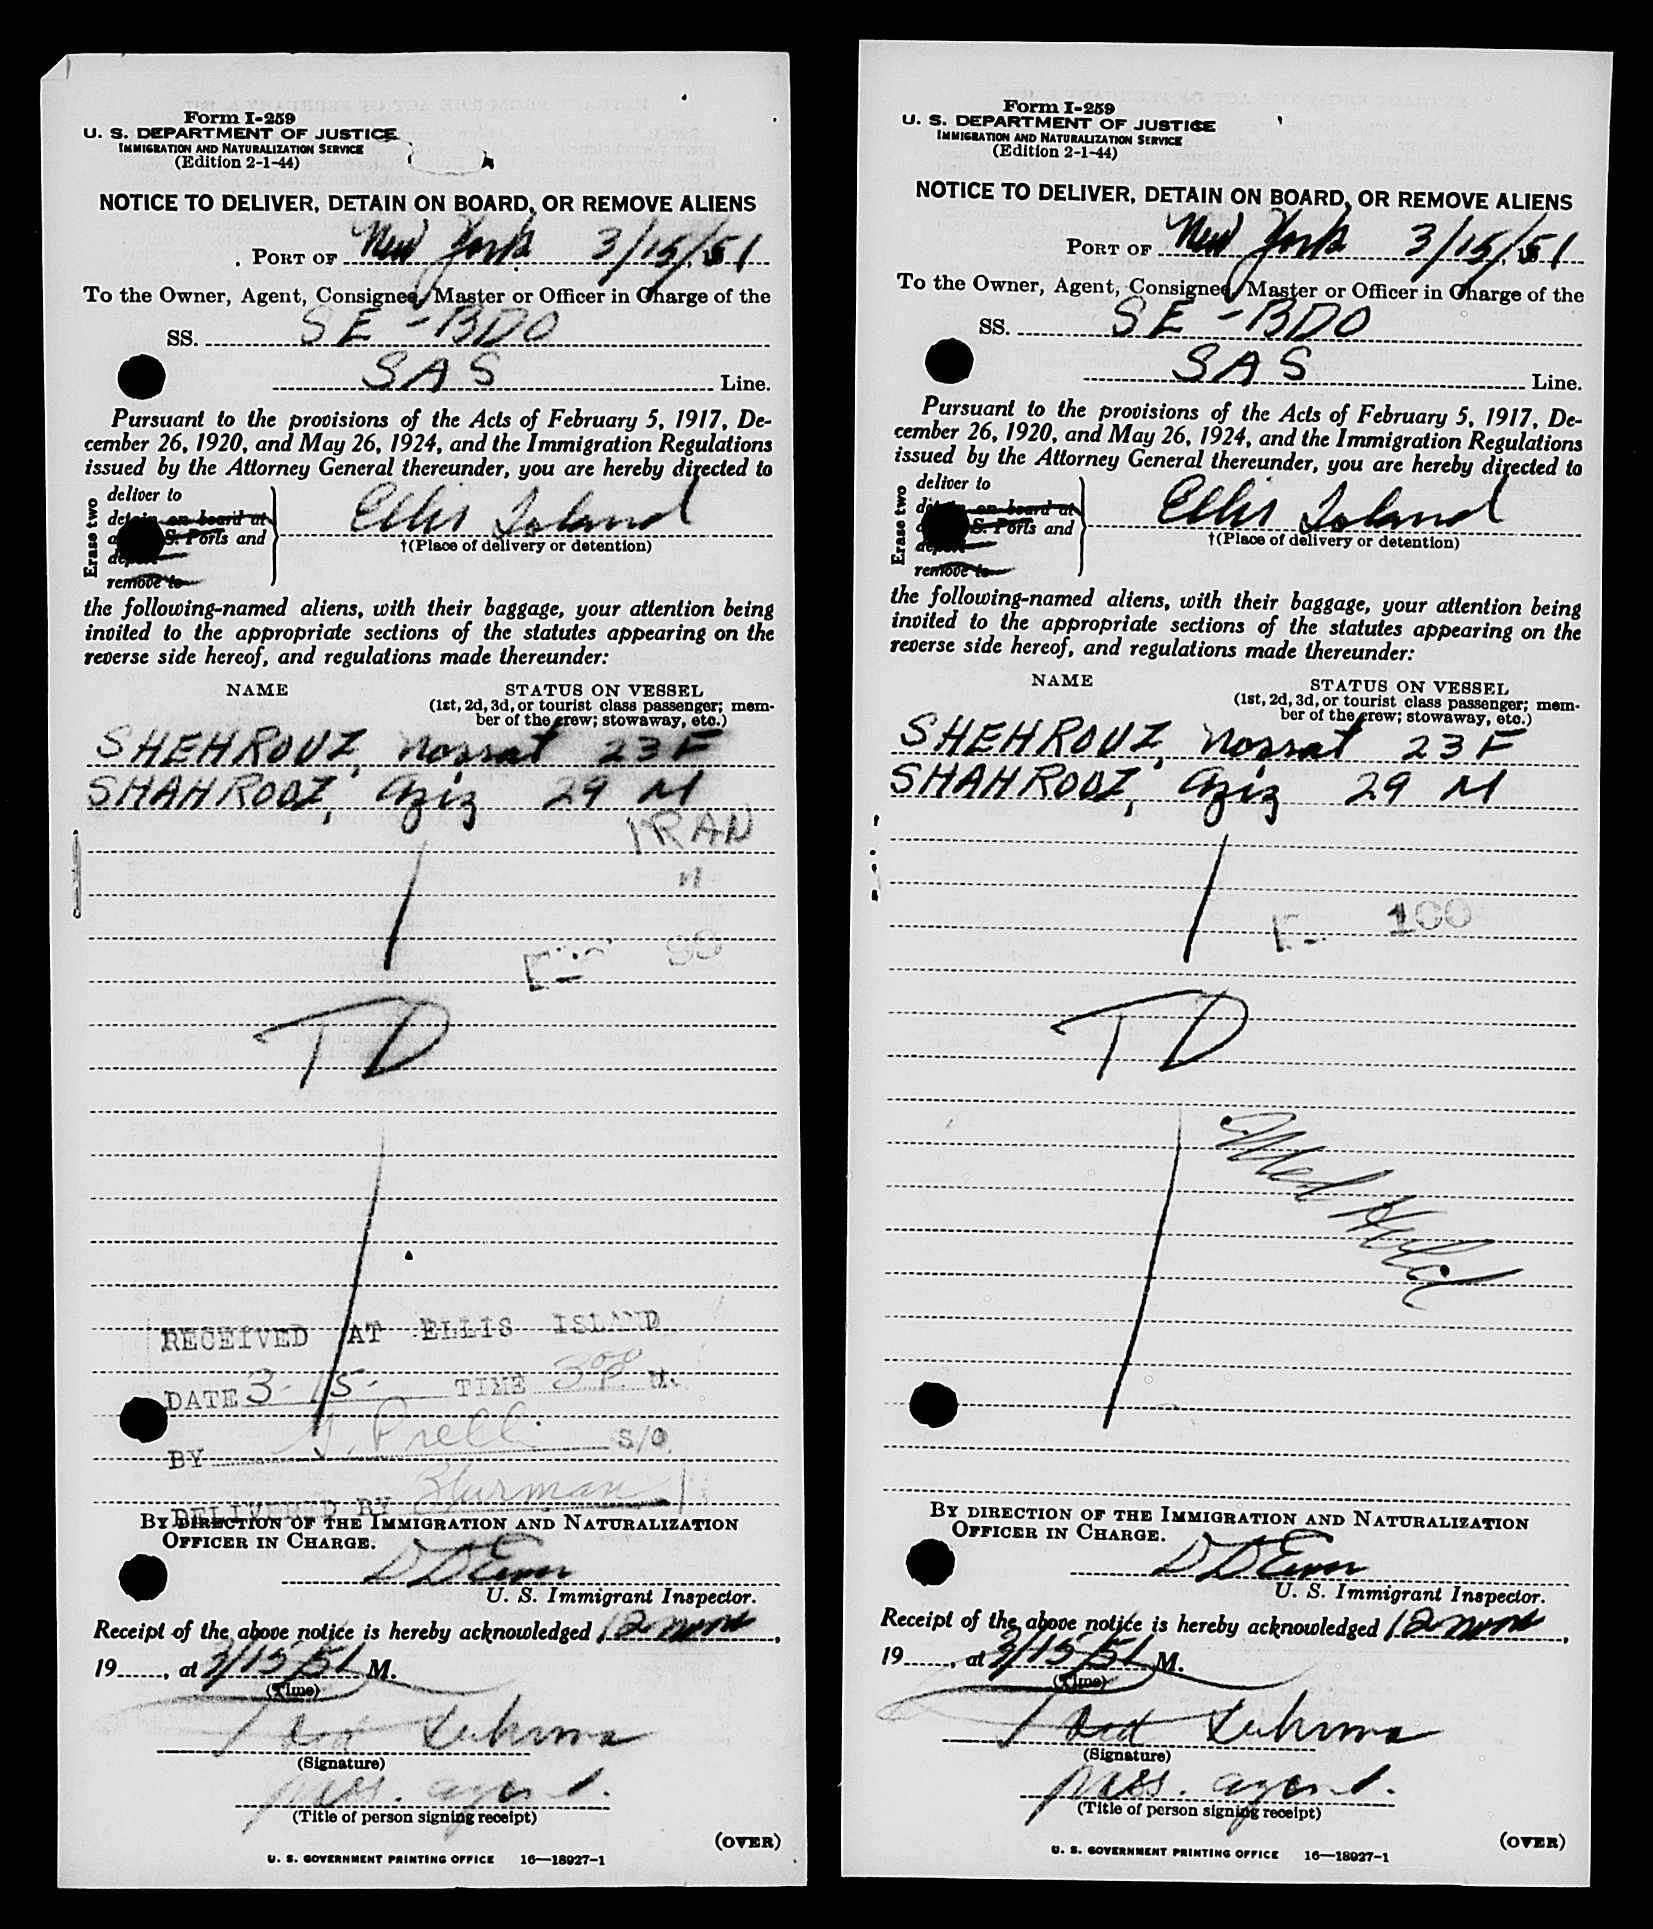 Form I-259
U. S. DEPARTMENT OF JUSTICE
IMMIGRATION AND NATURALIZATION SERVICE
(Edition 2-1-44)
NOTICE TO DELIVER, DETAIN ON BOARD, OR REMOVE ALIENS
PORT OF New York 3/15/51
To the Owner, Agent, Consignee, Master or Officer in Charge of the
SS. SE-BDO
SAS Line.
Pursuant to the provisions of the Acts of February 5, 1917, De-
cember 26, 1920, and May 26, 1924, and the Immigration Regulations
issued by the Attorney General thereunder, you are hereby directed to
Erase two
deliver to
detain on board at
S. Ports and
deport
remove to
Ellis Island
†(Place of delivery or detention)
the following-named aliens, with their baggage, your attention being
invited to the appropriate sections of the statutes appearing on the
reverse side hereof, and regulations made thereunder:
NAME
STATUS ON VESSEL
(1st, 2d, 3d, or tourist class passenger; mem-
ber of the crew; stowaway, etc.)
SHEHROUZ, Nossrat 23 F
SHAHROOZ, Aziz 29 M
IRAN
"
TD
RECEIVED AT ELLIS ISLAND
DATE 3-15- TIME 3 M.
BY S/O
DELIVERED BY
BY DIRECTION OF THE IMMIGRATION AND NATURALIZATION
OFFICER IN CHARGE.
U. S. Immigrant Inspector.
Receipt of the above notice is hereby acknowledged 12 noon,
19......, at 3/15/51 M.
(Time)
(Signature)
pass. agent.
(Title of person signing receipt)
(OVER)
U. S. GOVERNMENT PRINTING OFFICE 16—18927-1
Form I-259
U. S. DEPARTMENT OF JUSTICE
IMMIGRATION AND NATURALIZATION SERVICE
(Edition 2-1-44)
NOTICE TO DELIVER, DETAIN ON BOARD, OR REMOVE ALIENS
PORT OF New York 3/15/51
To the Owner, Agent, Consignee, Master or Officer in Charge of the
SS. SE-BDO
SAS Line.
Pursuant to the provisions of the Acts of February 5, 1917, De-
cember 26, 1920, and May 26, 1924, and the Immigration Regulations
issued by the Attorney General thereunder, you are hereby directed to
Erase two
deliver to
on board at
S. Ports and
deport
remove to
Ellis Island
†(Place of delivery or detention)
the following-named aliens, with their baggage, your attention being
invited to the appropriate sections of the statutes appearing on the
reverse side hereof, and regulations made thereunder:
NAME
STATUS ON VESSEL
(1st, 2d, 3d, or tourist class passenger; mem-
ber of the crew; stowaway, etc.)
SHEHROUZ, Nossrat 23 F
SHAHROOZ, Aziz 29 M
100
TD
Med Held
BY DIRECTION OF THE IMMIGRATION AND NATURALIZATION
OFFICER IN CHARGE.
U. S. Immigrant Inspector.
Receipt of the above notice is hereby acknowledged 12 noon,
19......, at 3/15/51 M.
(Time)
(Signature)
pass. agent.
(Title of person signing receipt)
(OVER)
U. S. GOVERNMENT PRINTING OFFICE 16—18927-1